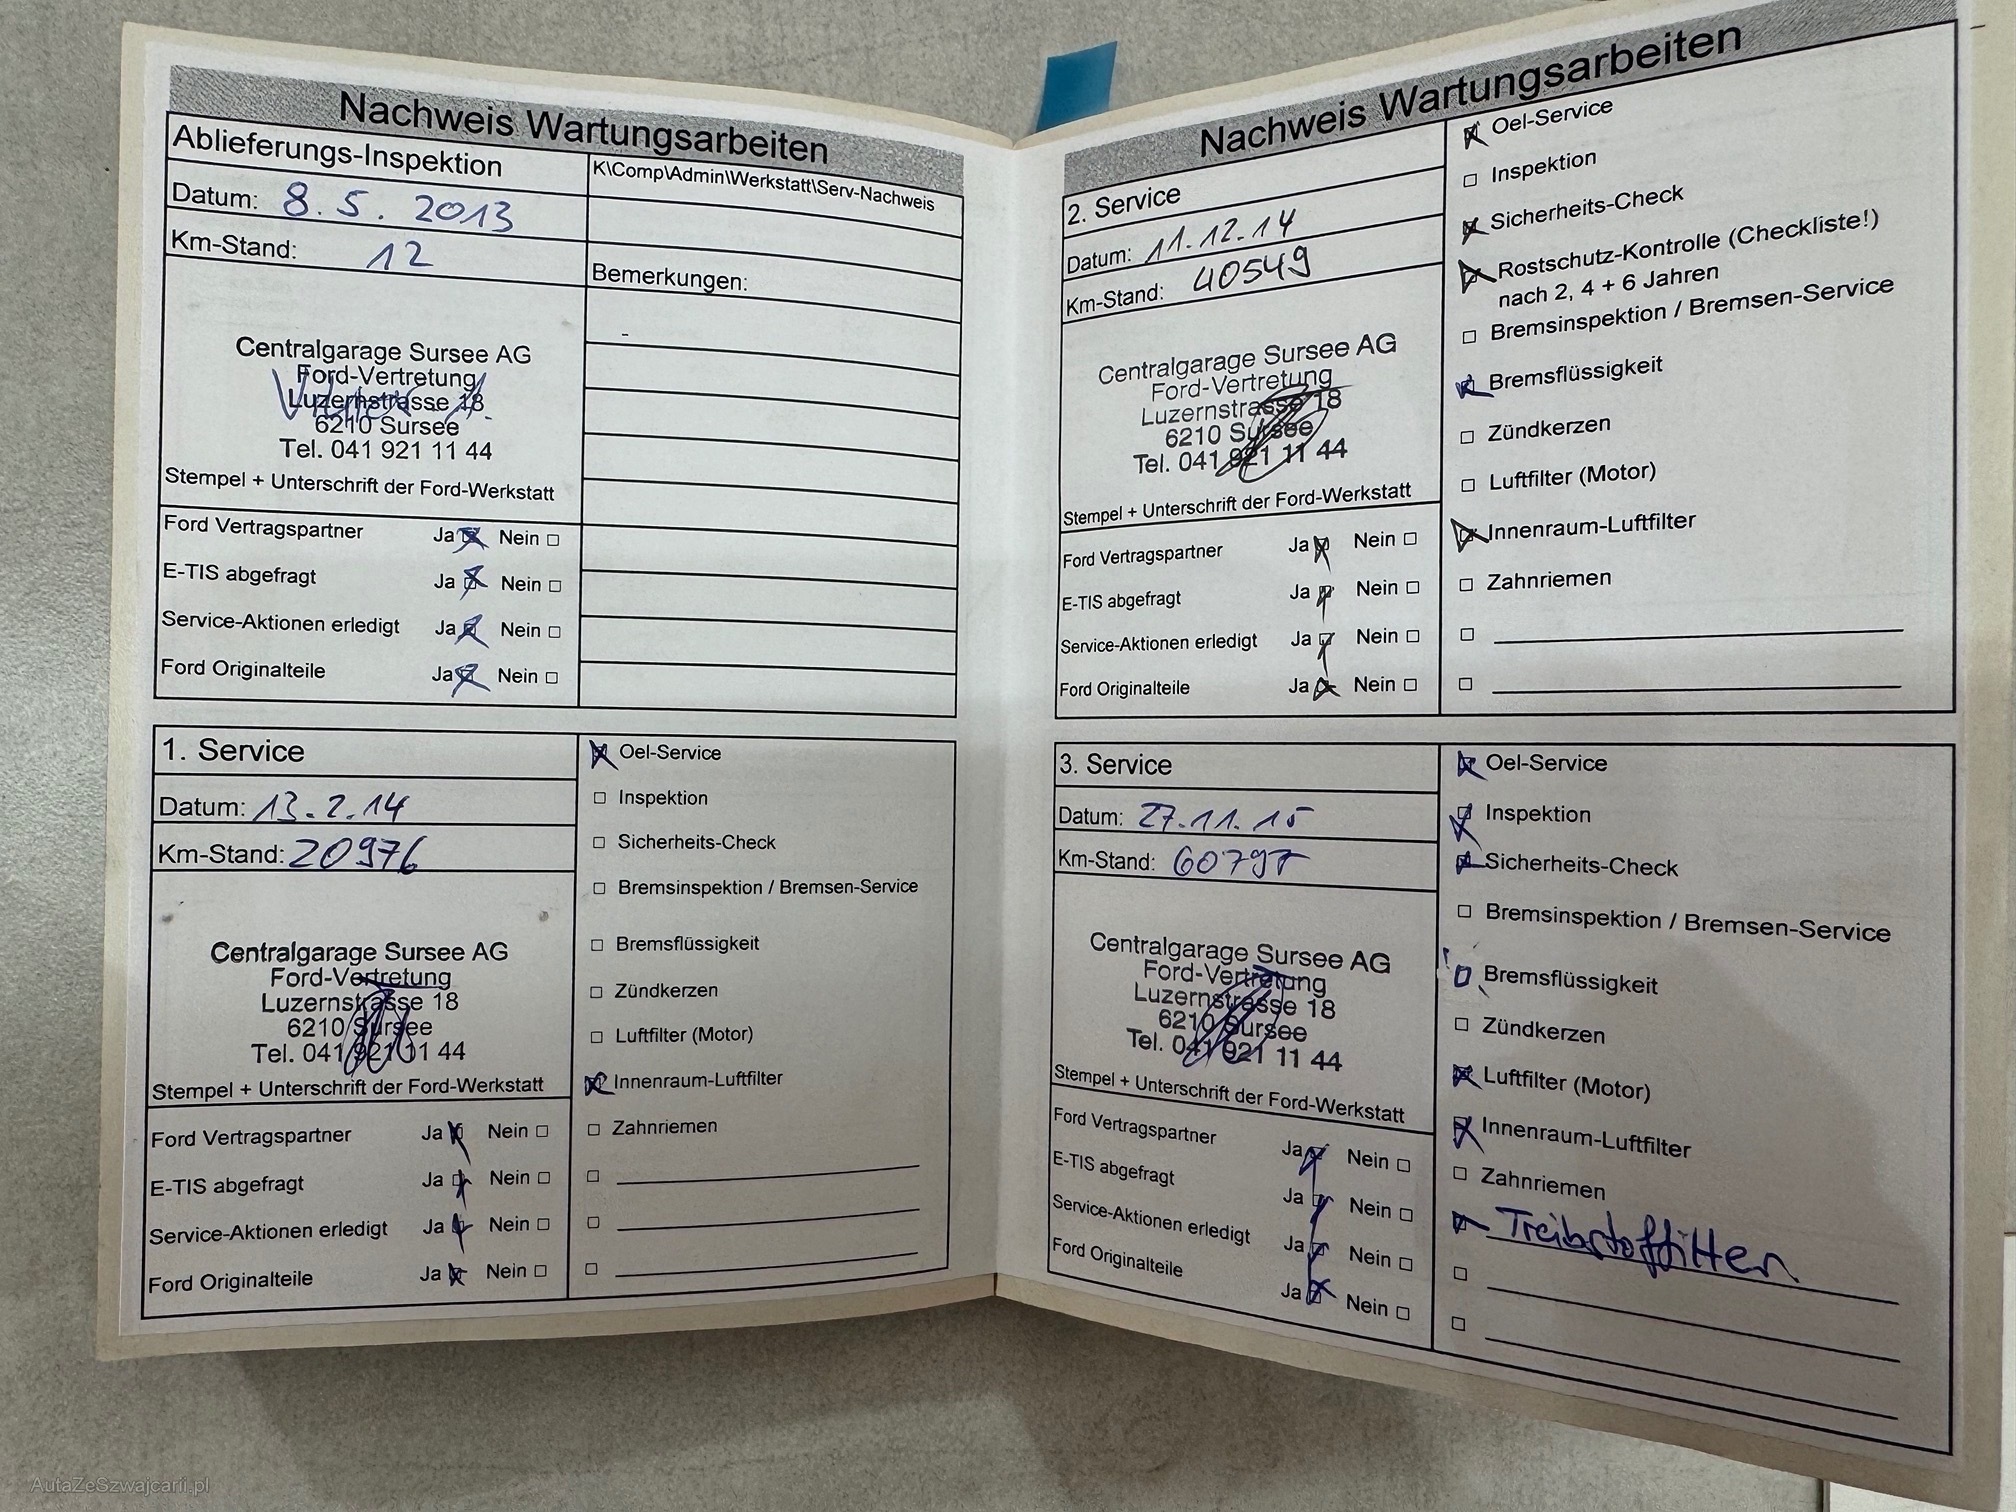 Nachweis Wartungsarbeiten
Ablieferungs-Inspektion
K\Comp\Admin\Werkstatt\Serv-Nachweis
Datum: 8.5.2013
Km-Stand: 12
Bemerkungen:
-
Centralgarage Sursee AG
Ford-Vertretung
Luzernstrasse 18
6210 Sursee
Tel. 041 921 11 44
Stempel + Unterschrift der Ford-Werkstatt
Ford Vertragspartner Ja Nein
E-TIS abgefragt Ja Nein
Service-Aktionen erledigt Ja Nein
Ford Originalteile Ja Nein
1. Service
Datum: 13.2.14
Km-Stand: 20976
Centralgarage Sursee AG
Ford-Vertretung
Luzernstrasse 18
6210 Sursee
Tel. 041 921 11 44
Stempel + Unterschrift der Ford-Werkstatt
Ford Vertragspartner Ja Nein
E-TIS abgefragt Ja Nein
Service-Aktionen erledigt Ja Nein
Ford Originalteile Ja Nein
Oel-Service
Inspektion
Sicherheits-Check
Bremsinspektion / Bremsen-Service
Bremsflüssigkeit
Zündkerzen
Luftfilter (Motor)
Innenraum-Luftfilter
Zahnriemen
Nachweis Wartungsarbeiten
2. Service
Datum: 11.12.14
Km-Stand: 40549
Centralgarage Sursee AG
Ford-Vertretung
Luzernstrasse 18
6210 Sursee
Tel. 041 921 11 44
Stempel + Unterschrift der Ford-Werkstatt
Ford Vertragspartner Ja Nein
E-TIS abgefragt Ja Nein
Service-Aktionen erledigt Ja Nein
Ford Originalteile Ja Nein
Oel-Service
Inspektion
Sicherheits-Check
Rostschutz-Kontrolle (Checkliste!)
nach 2, 4 + 6 Jahren
Bremsinspektion / Bremsen-Service
Bremsflüssigkeit
Zündkerzen
Luftfilter (Motor)
Innenraum-Luftfilter
Zahnriemen
3. Service
Datum: 27.11.15
Km-Stand:
Centralgarage Sursee AG
Ford-Vertretung
Luzernstrasse 18
6210 Sursee
Tel. 041 921 11 44
Stempel + Unterschrift der Ford-Werkstatt
Ford Vertragspartner Ja Nein
E-TIS abgefragt Ja Nein
Service-Aktionen erledigt Ja Nein
Ford Originalteile Ja Nein
Oel-Service
Inspektion
Sicherheits-Check
Bremsinspektion / Bremsen-Service
Bremsflüssigkeit
Zündkerzen
Luftfilter (Motor)
Innenraum-Luftfilter
Zahnriemen
Treibstofffilter
AutaZeSzwajcarii.pl